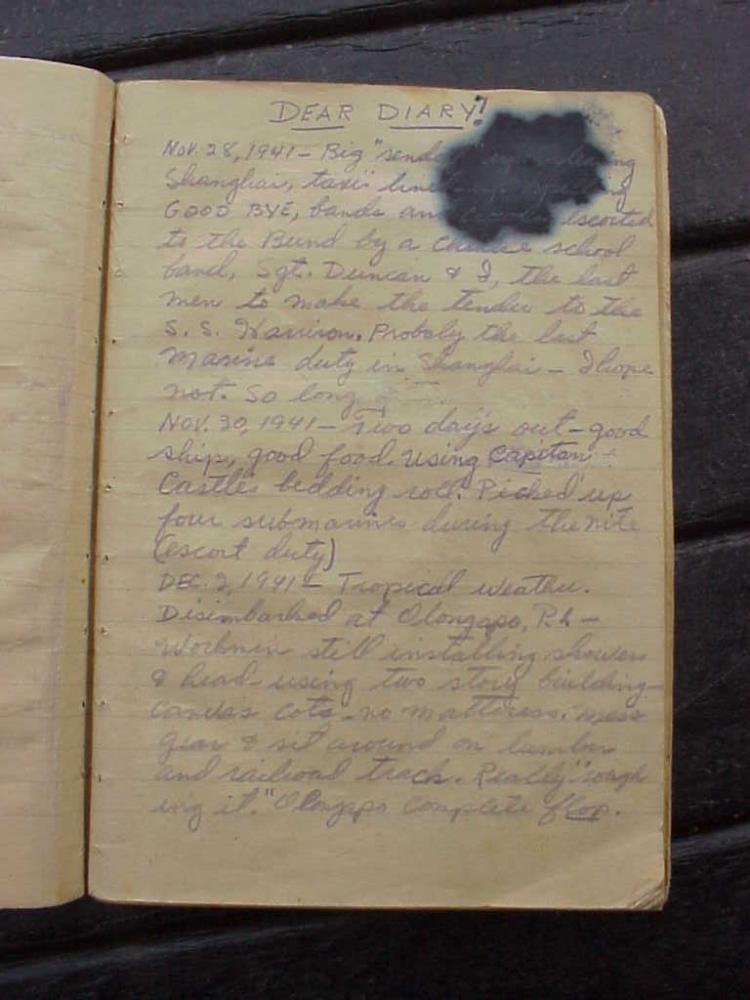 DEAR DIARY!
Nov. 28, 1941 - Big "send
Shanghai, taxi line
GOOD BYE, bands an escorted
to the Bund by a Chinese school
band. Sgt. Duncan & I, the last
men to make the tender to the
S. S. Harrison. Probaly the last
marine duty in Shanghai - I hope
not. So long
NOV. 30, 1941 - Two day's out - good
ship, good food. Using Capitan
Castles bedding roll. Picked up
four submarines during the nite
(escort duty)
DEC. 2, 1941 - Tropical weather.
Disimbarked at Olongapo, P.I. -
Workmen still installing showers
& head - using two story building -
canvas cots - no mattress. mess
gear & sit around on lumber
and railroad track. Really "rough
ing it." Olongapo complete flop.